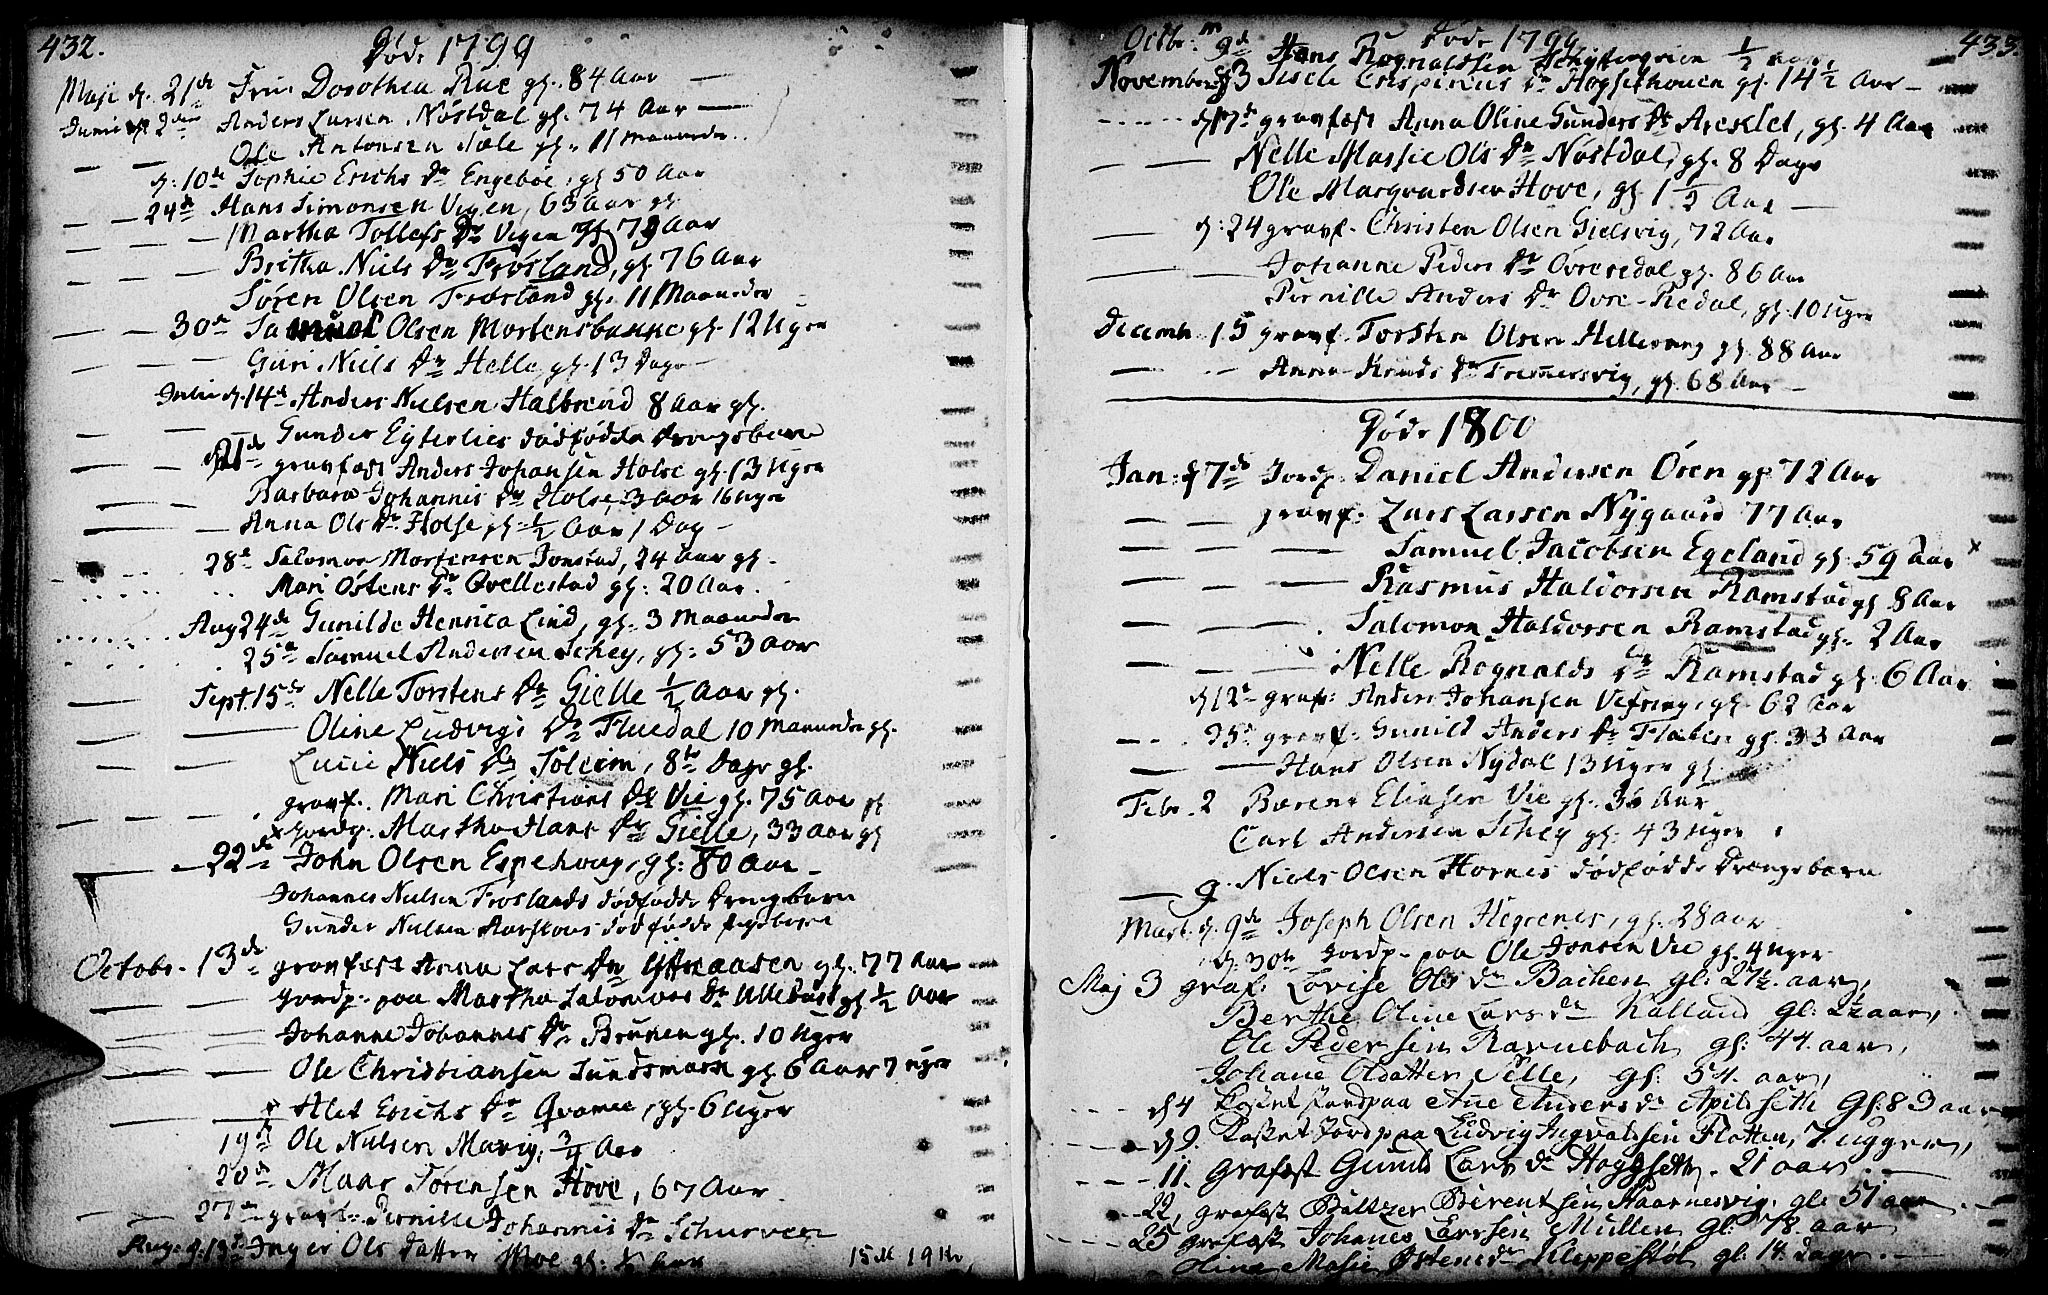 432.
Døde 1799
Maji d. 21de Fru Dorothea Rue gl. 84 Aar
Junii d 2den Anders Larsen Nøstdal gl. 74 Aar
Ole Antonsen Sæle gl. 11 Maaneder
d: 10de Sophie Erichs Dr Engeboe, gl 50 Aar
24de Hans Simonsen Vegen, 63 Aar gl.
Martha Tollefs Dr Vegen gl 79 Aar
Britha Niels Dr Frøsland, gl 76 Aar
Søren Olsen Frøsland gl. 11 Maaneder
30de Samuel Olsen Mortensbakke gl. 12 Uger
Guri Niels Dr Helle gl. 13 Dage
Julii d. 14de Anders Nielsen Halbrend 8 Aar gl.
Gunder dødfødde Drengebarn
d 21de gravfæst Anders Johansen Holse gl. 13 Uger
Barbara Johannis Dr Holse, 3 Aar 16 Uger
Anna Ols Dr Holse gl. 1/2 Aar 1 Dag
28de Salomon Mortensen Jonstad, 24 Aar gl.
Mari Østens Dr Qvellestad gl: 20 Aar
Aug 24de Gunilde Henrica Lind, gl. 3 Maaneder
25de Samuel Andersen Schey, gl: 53 Aar
Sept. 15de Nelle Torstens Dr Gielle 1/2 Aar gl.
Oline Ludvigs Dr Fluedal 10 Maaneder gl.
Lucie Niels Dr Soleim, 8te Dage gl.
gravf. Mari Christians Dr Vie gl. 75 Aar
Jordp. Martha Hans Dr Gielle, 33 Aar gl
22de John Olsen Espehoug, gl: 80 Aar
Johannes Nielsen Frøslands dødfødde Drengebarn
Gunder Nielsen dødfødde Pigebarn
Octobr. 13de gravfæst Anna Lars Dr gl. 77 Aar
Jordp. paa Martha Salomons Dr Ullebust gl 1/2 Aar
Johanne Johannes Dr Brunen gl. 10 Uger
Ole Christiansen Sundsmark gl 6 Aar 7 uger
Alet Erichs Dr Qvamme, gl. 6 Uger
19de Ole Nielsen Marig, 3/4 Aar
20de Maar Sørensen Hove, 67 Aar
27de gravf. Pernille Johannis Dr
Aug. d. 19de Inger Ols Datter Moe gl: 1/2 Aar
433.
Døde 1799
Octbr. 9de Hans Rognaldsen 1/2 Aar,
November d 3 Sisele Crispinus Dr Høgsethouen gl. 14 1/2 Aar
d 17de gravfæst Anna Oline Gunders Dr Areklet, gl. 4 Aar
Nelle Massie Ols Dr Nøstdal, gl. 8 Dage
Ole Marqvardsen Hove, gl 1 1/2 Aar
d: 24 gravf. Christen Olsen Gielsvig, 72 Aar
Johanne Peders Dr Øvreredal gl. 86 Aar
Pernille Anders Dr Øvre-Redal, gl. 10 Uger
Decemb. 15 gravf. Torsten Olsen Hellevang gl 88 Aar
Anna Knuds Dr Fremersvig, gl. 68 Aar
Døde 1800
Jan: d 7de Jordp. Daniel Andersen Osen gl 72 Aar
gravf. Lars Larsen Nygaard 77 Aar
Samuel Jacobsen Egeland gl. 59 Aar
Rasmus Haldorsen Ramstad gl 8 Aar
Salomon Haldorsen Ramstad gl. 2 Aar
Nelle Rognalds Dr Ramstad gl. 6 Aar
d 12te graf: Anders Johansen Vefring, gl. 62 Aar
25de gravf. Gunild Anders Dr Flaten gl. 33 Aar
Hans Olsen Nydal 13 Uger gl.
Febr. 2 Barent Eliasen Vie gl. 36 Aar
Carl Andersen Schey gl. 43 Uger
9. Niels Olsen Hornes dødfødde Drengebarn
Mart. d. 9de Joseph Olsen Hegrenes, gl. 28 aar
d. 30te Jordp. paa Ole Jonsen Vie gl. 4 Uger
Maj 3 graf: Lovise Ols dr Backen gl: 27 1/2 aar,
Berthe Oline Lars dr Kalland gl: 2 1/2 aar,
Ole Pedersen Ravnebach gl: 44. aar,
Johane Oldatter Selle, gl: 54. aar,
d 4 Kastet Jord paa Ane Anders dr Apilseth gl: 83 aar
d 9. Kastet Jord paa Ludvig Ingvaldsen Flatten, 7 ugger,
11. grafest Gunild Lars dr Høgseth. 21 aar.
22, grafest Baltzer Berentsen Haarnesvig. gl: 51 aar
25 grafest Johanes Larsen Mullen gl: 78. aar
Oline Masie Østens dr Kleppestøl gl: 14. dage.